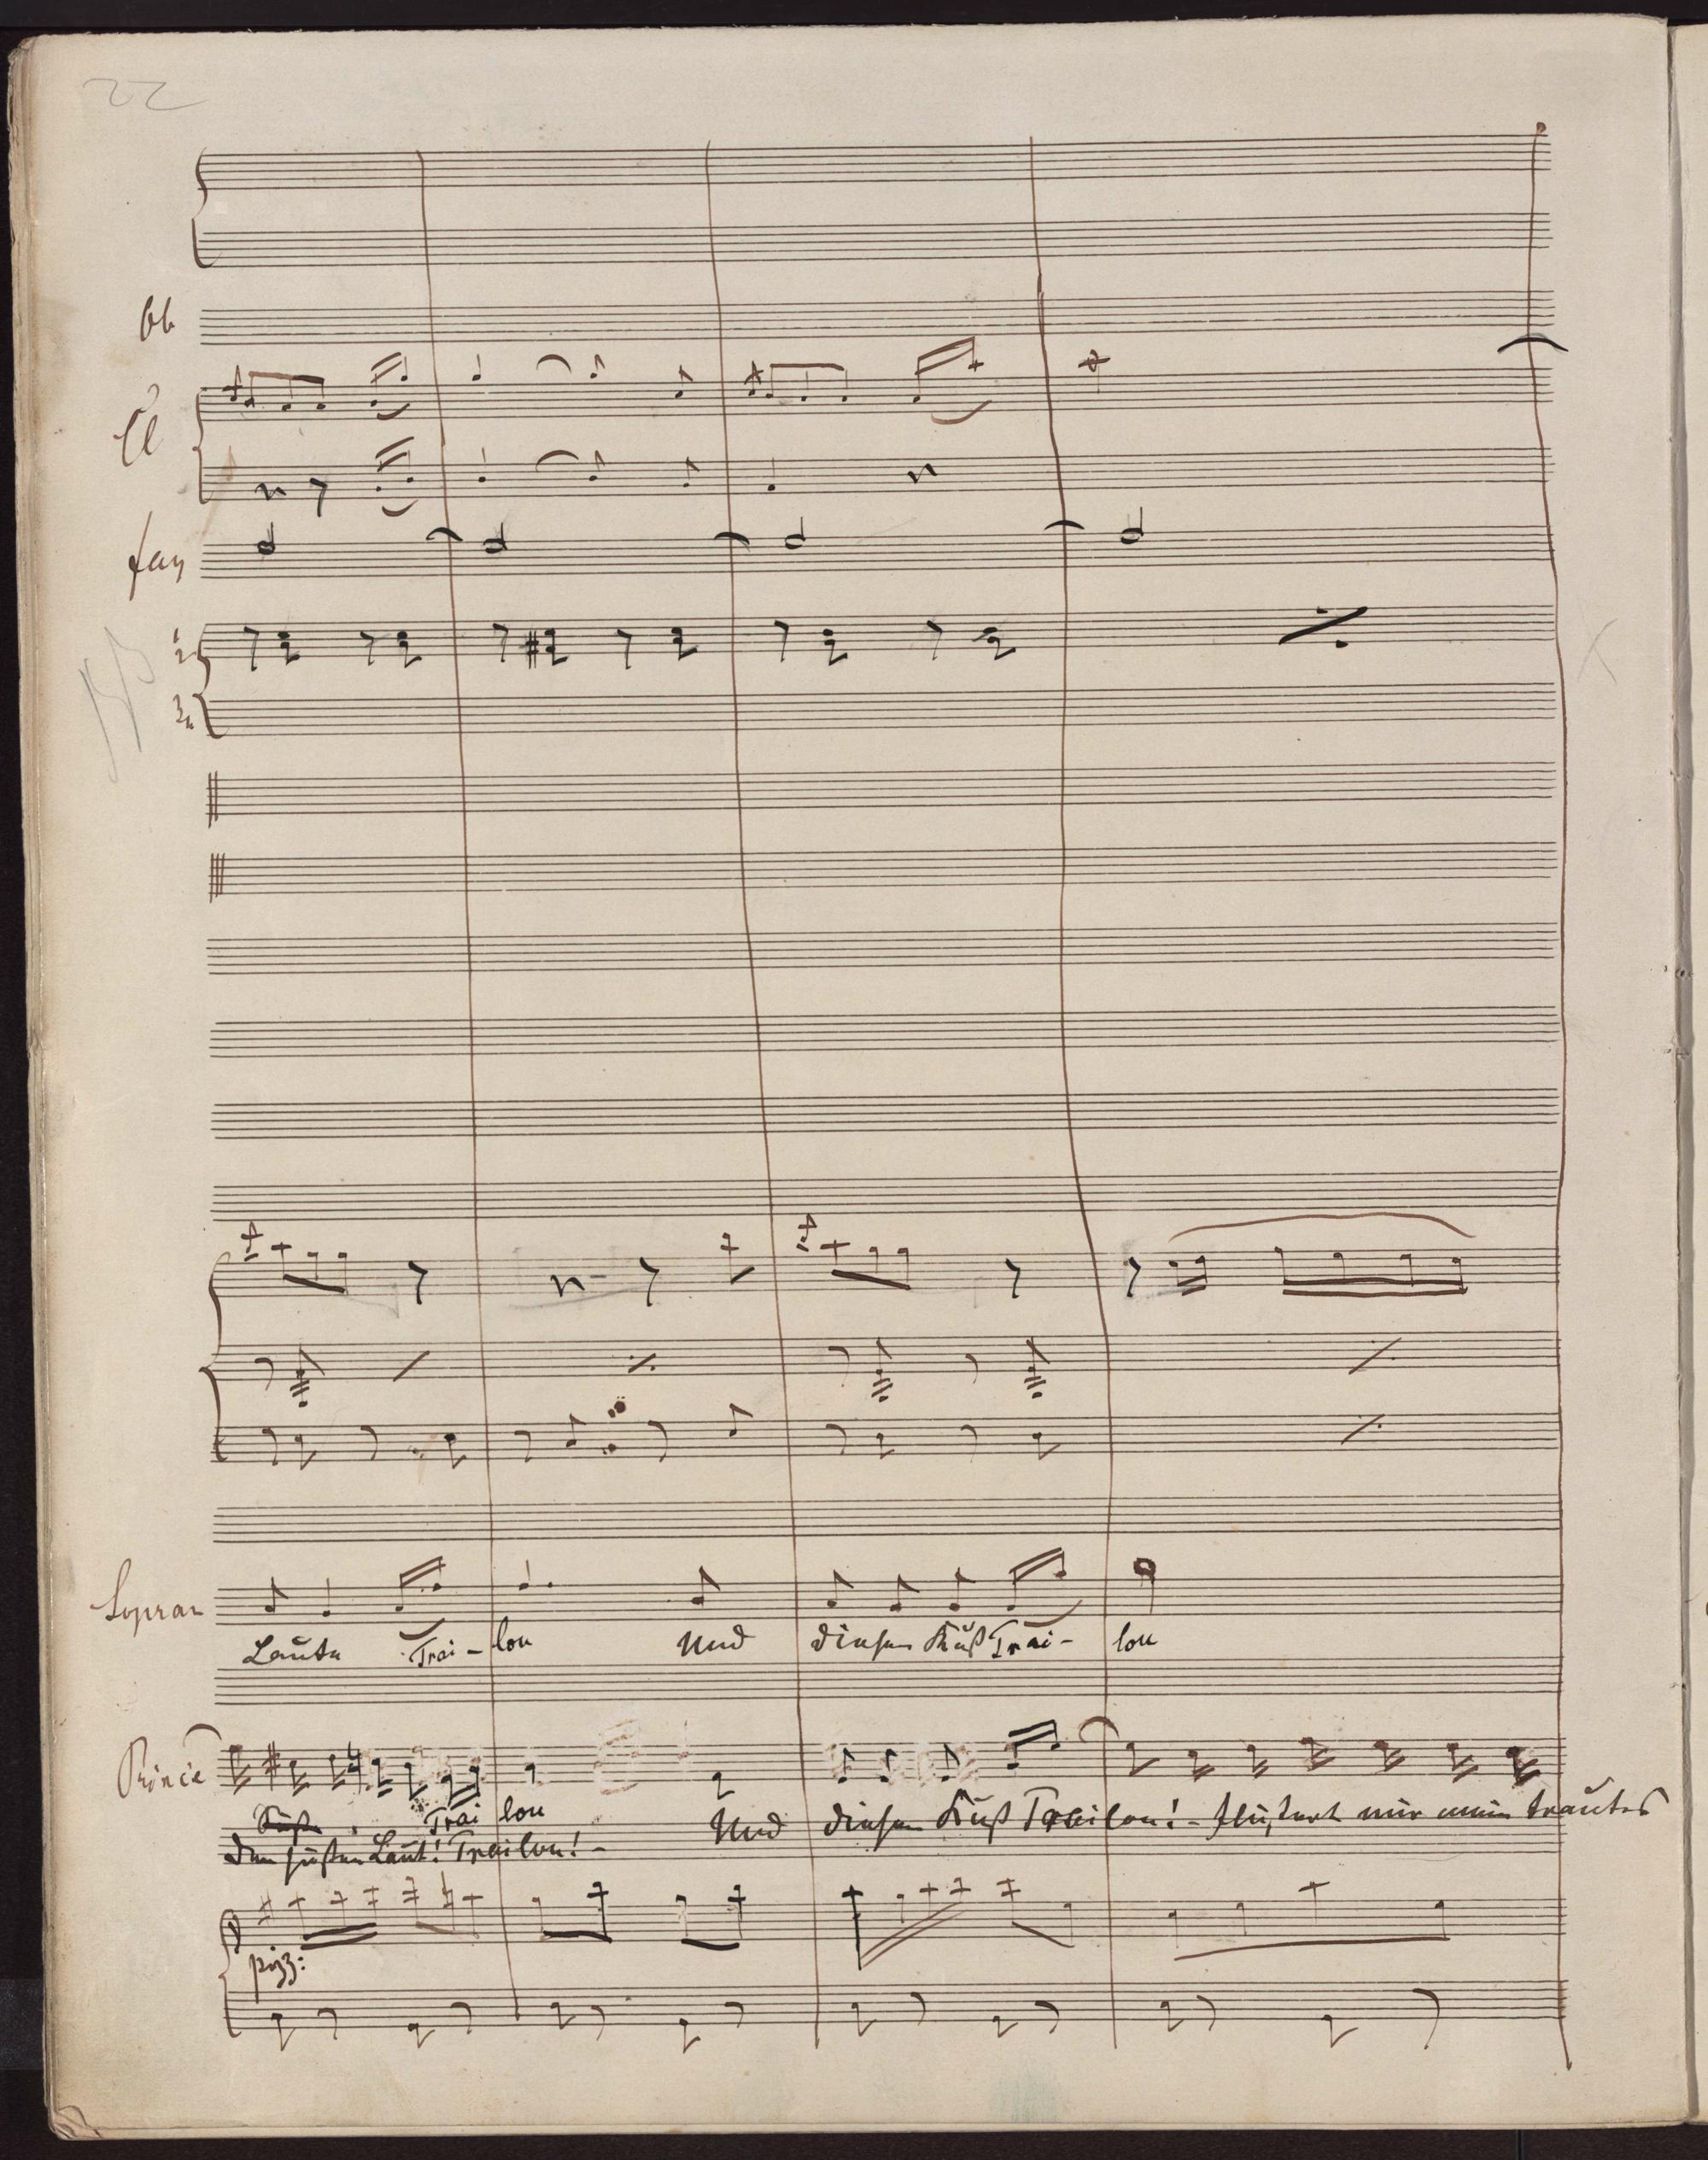 22
Cl
fag
Sopran
Laute Trai - lou Und diesen Kuß Trai - lou
Prinz
Trai lou Und diesen Kuß Trailou! - flüstert mir mein trautes
den süßen Laut! Trailou! -
pizz: